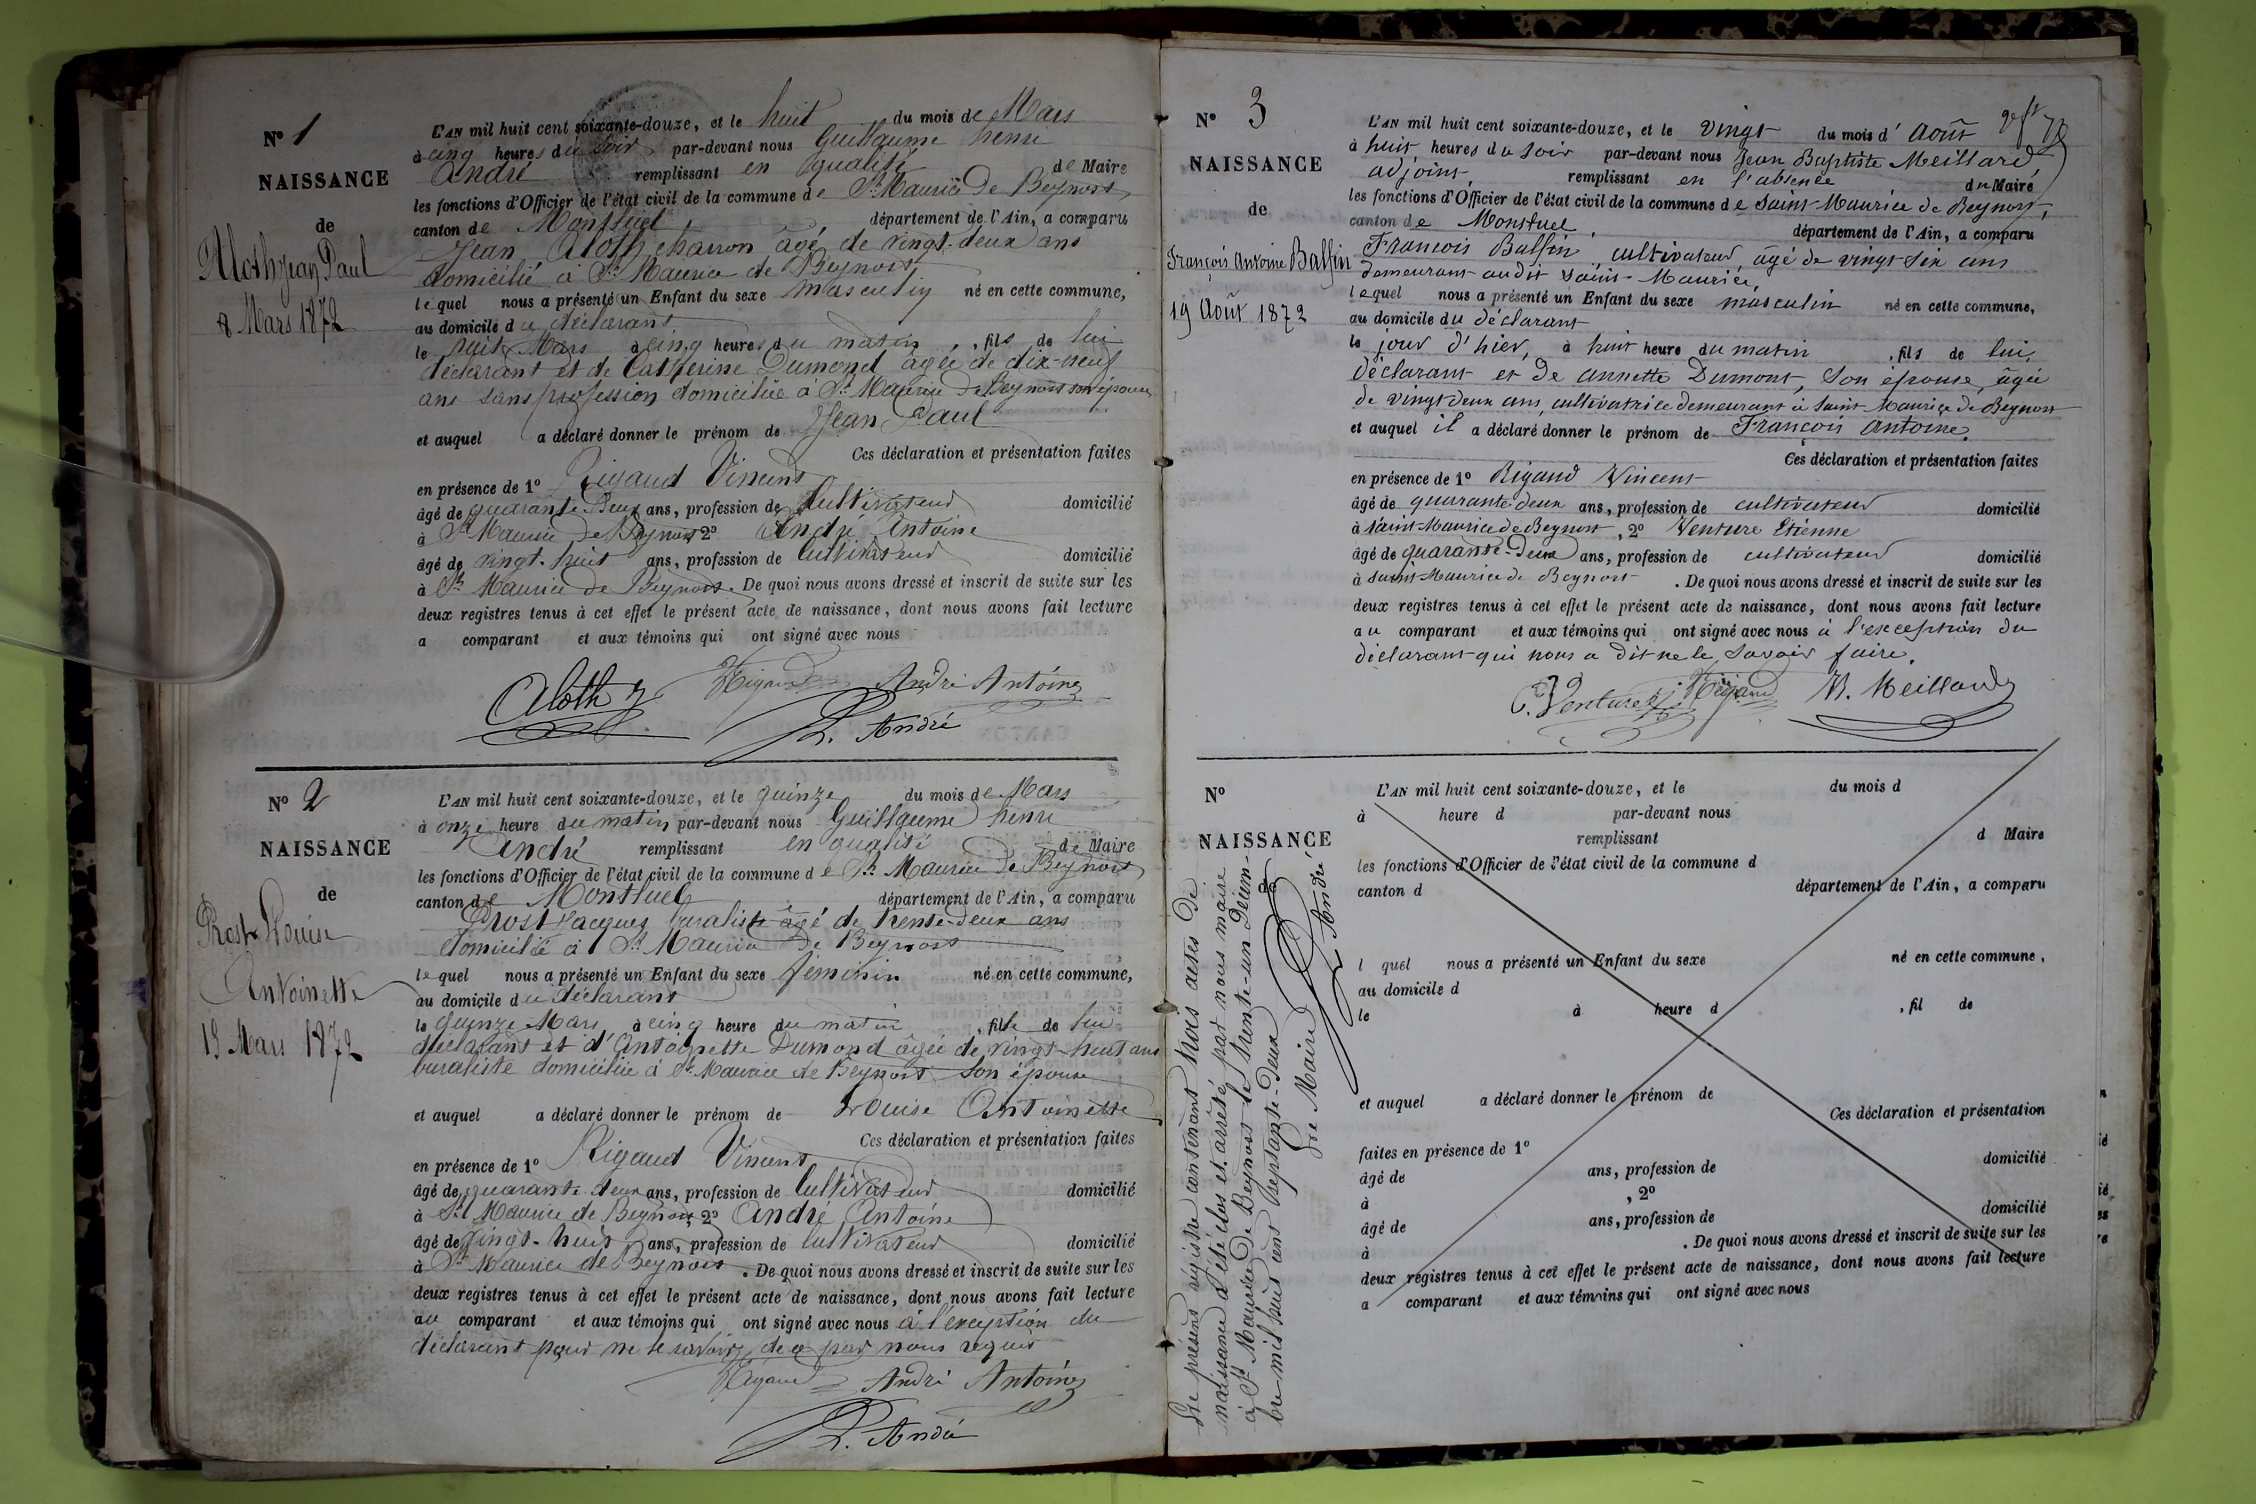 N° 1
NAISSANCE
de
Aloth Jean Paul
8 Mars 1872
L'AN mil huit cent soixante-douze, et le huit du mois de Mars
à cinq heures du soir par-devant nous Guillaume henri
André remplissant en qualité de Maire
les fonctions d'Officier de l'état civil de la commune de St Maurice de Beynost
canton de Montluel département de l'Ain, a comparu
Jean Aloth charron âgé de vingt-deux ans
domicilié à St Maurice de Beynost
lequel nous a présenté un Enfant du sexe masculin né en cette commune,
au domicile du déclarant
le huit Mars à cinq heures du matin, fils de lui
déclarant et de Catherine Dumond âgée de dix-neuf
ans sans profession domiciliée à St Maurice de Beynost son épouse
et auquel a déclaré donner le prénom de Jean Paul
Ces déclaration et présentation faites
en présence de 1° Rigaud Vincent
âgé de quarante deux ans, profession de Cultivateur domicilié
à St Maurice de Beynost 2° André Antoine
âgé de vingt-huit ans, profession de Cultivateur domicilié
à St Maurice de Beynost. De quoi nous avons dressé et inscrit de suite sur les
deux registres tenus à cet effet le présent acte de naissance, dont nous avons fait lecture
a comparant et aux témoins qui ont signé avec nous
Aloth Rigaud André Antoine
André
N° 2
NAISSANCE
de
Prost Louise
Antoinette
15 Mars 1872
L'AN mil huit cent soixante-douze, et le quinze du mois de Mars
à onze heure du matin par-devant nous Guillaume henri
André remplissant en qualité de Maire
les fonctions d'Officier de l'état civil de la commune de St Maurice de Beynost
canton de Montluel département de l'Ain, a comparu
Prost Jacques buraliste âgé de trente-deux ans
domicilié à St Maurice de Beynost
lequel nous a présenté un Enfant du sexe féminin né en cette commune,
au domicile du déclarant
le quinze Mars à cinq heure du matin, fille de lui
déclarant et d'Antoinette Dumond âgée de vingt-huit ans
buraliste domiciliée à St Maurice de Beynost son épouse
et auquel a déclaré donner le prénom de Louise Antoinette
Ces déclaration et présentation faites
en présence de 1° Rigaud Vincent
âgé de quarante deux ans, profession de Cultivateur domicilié
à St Maurice de Beynost, 2° André Antoine
âgé de vingt-huit ans, profession de Cultivateur domicilié
à St Maurice de Beynost. De quoi nous avons dressé et inscrit de suite sur les
deux registres tenus à cet effet le présent acte de naissance, dont nous avons fait lecture
au comparant et aux témoins qui ont signé avec nous à l'exception du
déclarant pour ne le savoir de ce par nous requis
Rigaud André Antoine
André
N° 3
NAISSANCE
de
François Antoine Balfin
19 Août 1872
L'AN mil huit cent soixante-douze, et le vingt du mois d'Août
à huit heures du soir par-devant nous Jean Baptiste Meillard
adjoint, remplissant en l'absence du Maire
les fonctions d'Officier de l'état civil de la commune de Saint-Maurice de Beynost,
canton de Monstuel, département de l'Ain, a comparu
François Balfin, cultivateur, âgé de vingt six ans
demeurant audit Saint-Maurice,
lequel nous a présenté un Enfant du sexe masculin né en cette commune,
au domicile du déclarant
le jour d'hier, à huit heure du matin, fils de lui,
déclarant et de Annette Dumont, son épouse, âgée
de vingt deux ans, cultivatrice demeurant à Saint Maurice de Beynost
et auquel il a déclaré donner le prénom de François Antoine.
Ces déclaration et présentation faites
en présence de 1° Rigaud Vincent
âgé de quarante-deux ans, profession de cultivateur domicilié
à Saint-Maurice de Beynost, 2° Venture Etienne
âgé de quarante-deux ans, profession de cultivateur domicilié
à Saint-Maurice de Beynost. De quoi nous avons dressé et inscrit de suite sur les
deux registres tenus à cet effet le présent acte de naissance, dont nous avons fait lecture
au comparant et aux témoins qui ont signé avec nous à l'exception du
déclarant qui nous a dit ne le savoir faire.
Venture Rigaud Meillard
N°
NAISSANCE
de
L'AN mil huit cent soixante-douze, et le du mois d
à heure d par-devant nous
remplissant d Maire
les fonctions d'Officier de l'état civil de la commune d
canton d département de l'Ain, a comparu
l quel nous a présenté un Enfant du sexe né en cette commune,
au domicile d
le à heure d , fil de
et auquel a déclaré donner le prénom de
Ces déclaration et présentation
faites en présence de 1°
âgé de ans, profession de domicilié
à , 2°
âgé de ans, profession de domicilié
à . De quoi nous avons dressé et inscrit de suite sur les
deux registres tenus à cet effet le présent acte de naissance, dont nous avons fait lecture
a comparant et aux témoins qui ont signé avec nous
Le présent régistre contenant trois actes de
naissance a été clos et arrêté par nous maire
à St Maurice de Beynost le trente-un Décem-
bre mil huit cent septante-deux
Le Maire
André